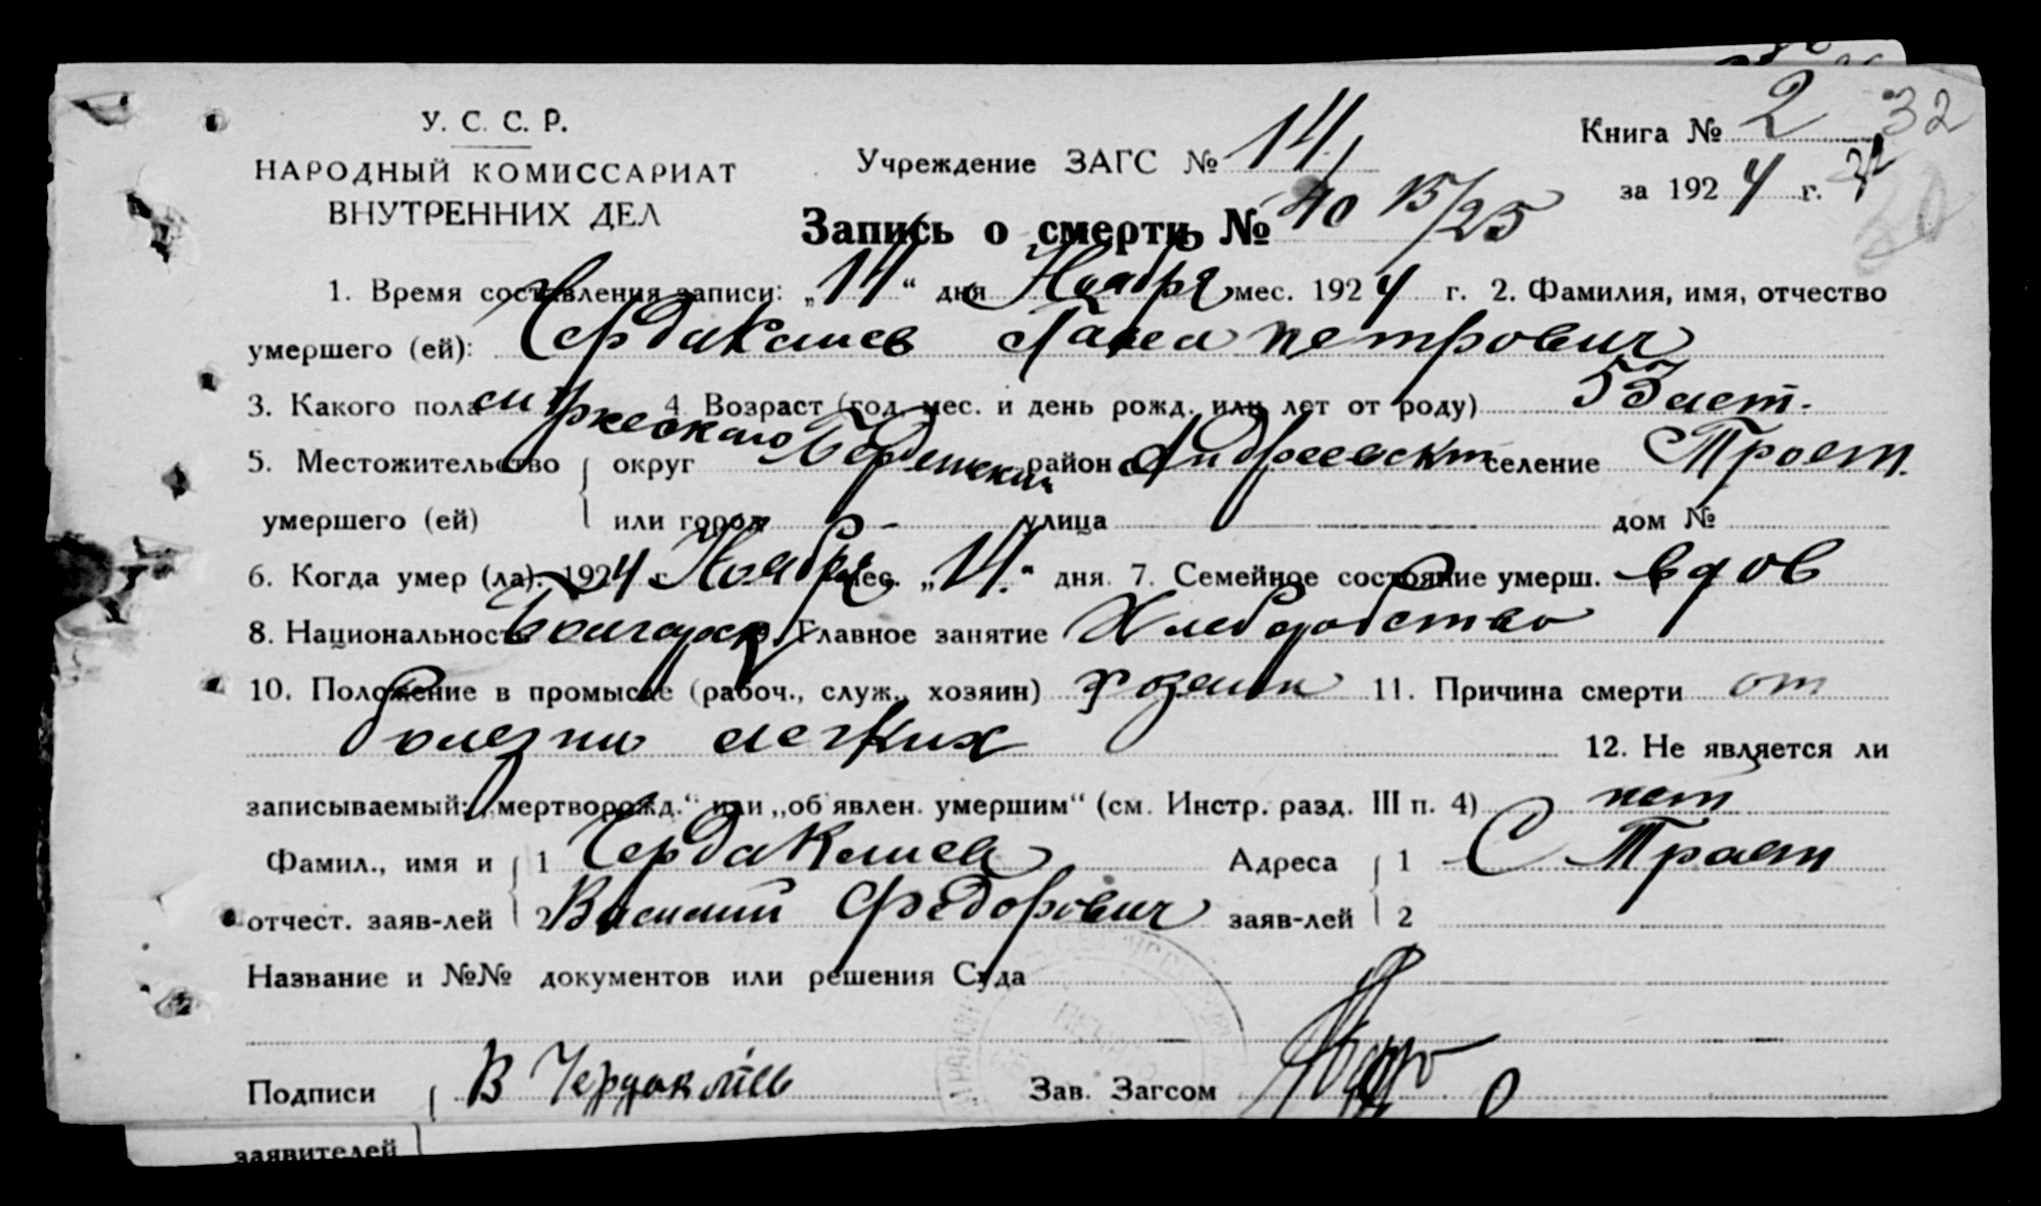 У. С. С. Р.
НАРОДНЫЙ КОМИССАРИАТ
ВНУТРЕННИХ ДЕЛ
Учреждение ЗАГС № 14
Книга № 2 32
за 1924 г.
Запись о смерти № 40 15/25
1. Время составления записи: „14“ дня Ноября мес. 1924 г. 2. Фамилия, имя, отчество
умершего (ей): Чердаклиев Павел петрович
3. Какого пола мужеского 4. Возраст (год. мес. и день рожд. или лет от роду) 53 лет.
5. Местожительство округ Бердянский район Андреевск селение Троян.
умершего (ей) или город - улица дом №
6. Когда умер (ла): 1924 г. Ноября мес. „14.“ дня. 7. Семейное состояние умерш. вдов
8. Национальность Болгарск 9. Главное занятие Хлебробство
10. Положение в промысле (рабоч., служ., хозяин) хозяин 11. Причина смерти от
болезни легких 12. Не является ли
записываемый: „мертворожд.“ или „об'явлен. умершим“ (см. Инстр. разд. III п. 4) нет
Фамил., имя и 1 Чердаклиев Адреса 1 С Троян
отчест. заяв-лей 2 Василий Федорович заяв-лей 2
Название и №№ документов или решения Суда
Подписи В Чердаклиев Зав. Загсом
заявителей